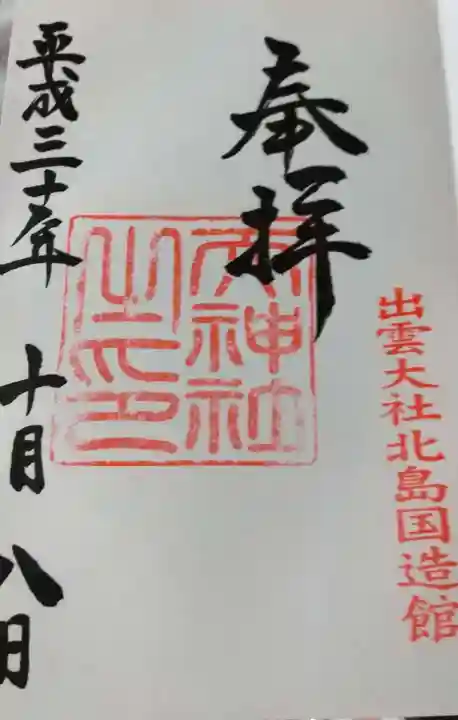 奉拝
出雲大社北島国造館
天神社之印
平成三十年 十月 八日